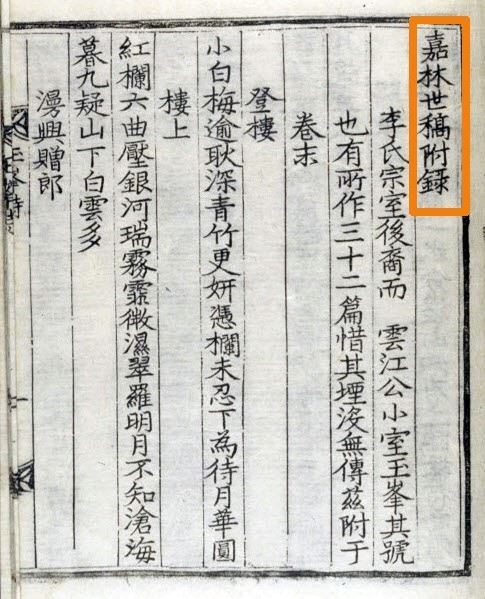 嘉林世稿附錄
李氏宗室後裔而 雲江公小室玉峯其號
也有所作三十二篇惜其堙沒無傳玆附于
卷末
登樓
小白梅逾耿深青竹更妍憑欄未忍下為待月華圓
樓上
紅欄六曲壓銀河瑞霧霏微濕翠羅明月不知滄海
暮九疑山下白雲多
漫興贈郎